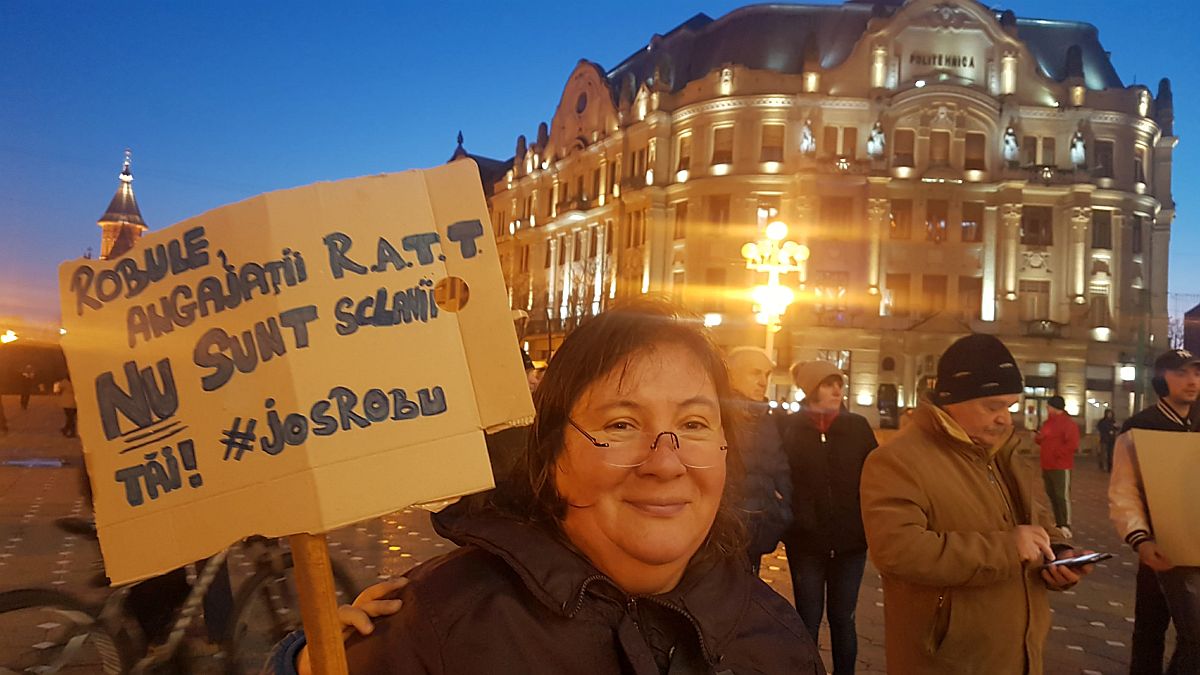 POLITEHNICA
ROBULE,
ANGAJAȚII R.A.T.T.
NU SUNT SCLAVII
TĂI! #JOSROBU